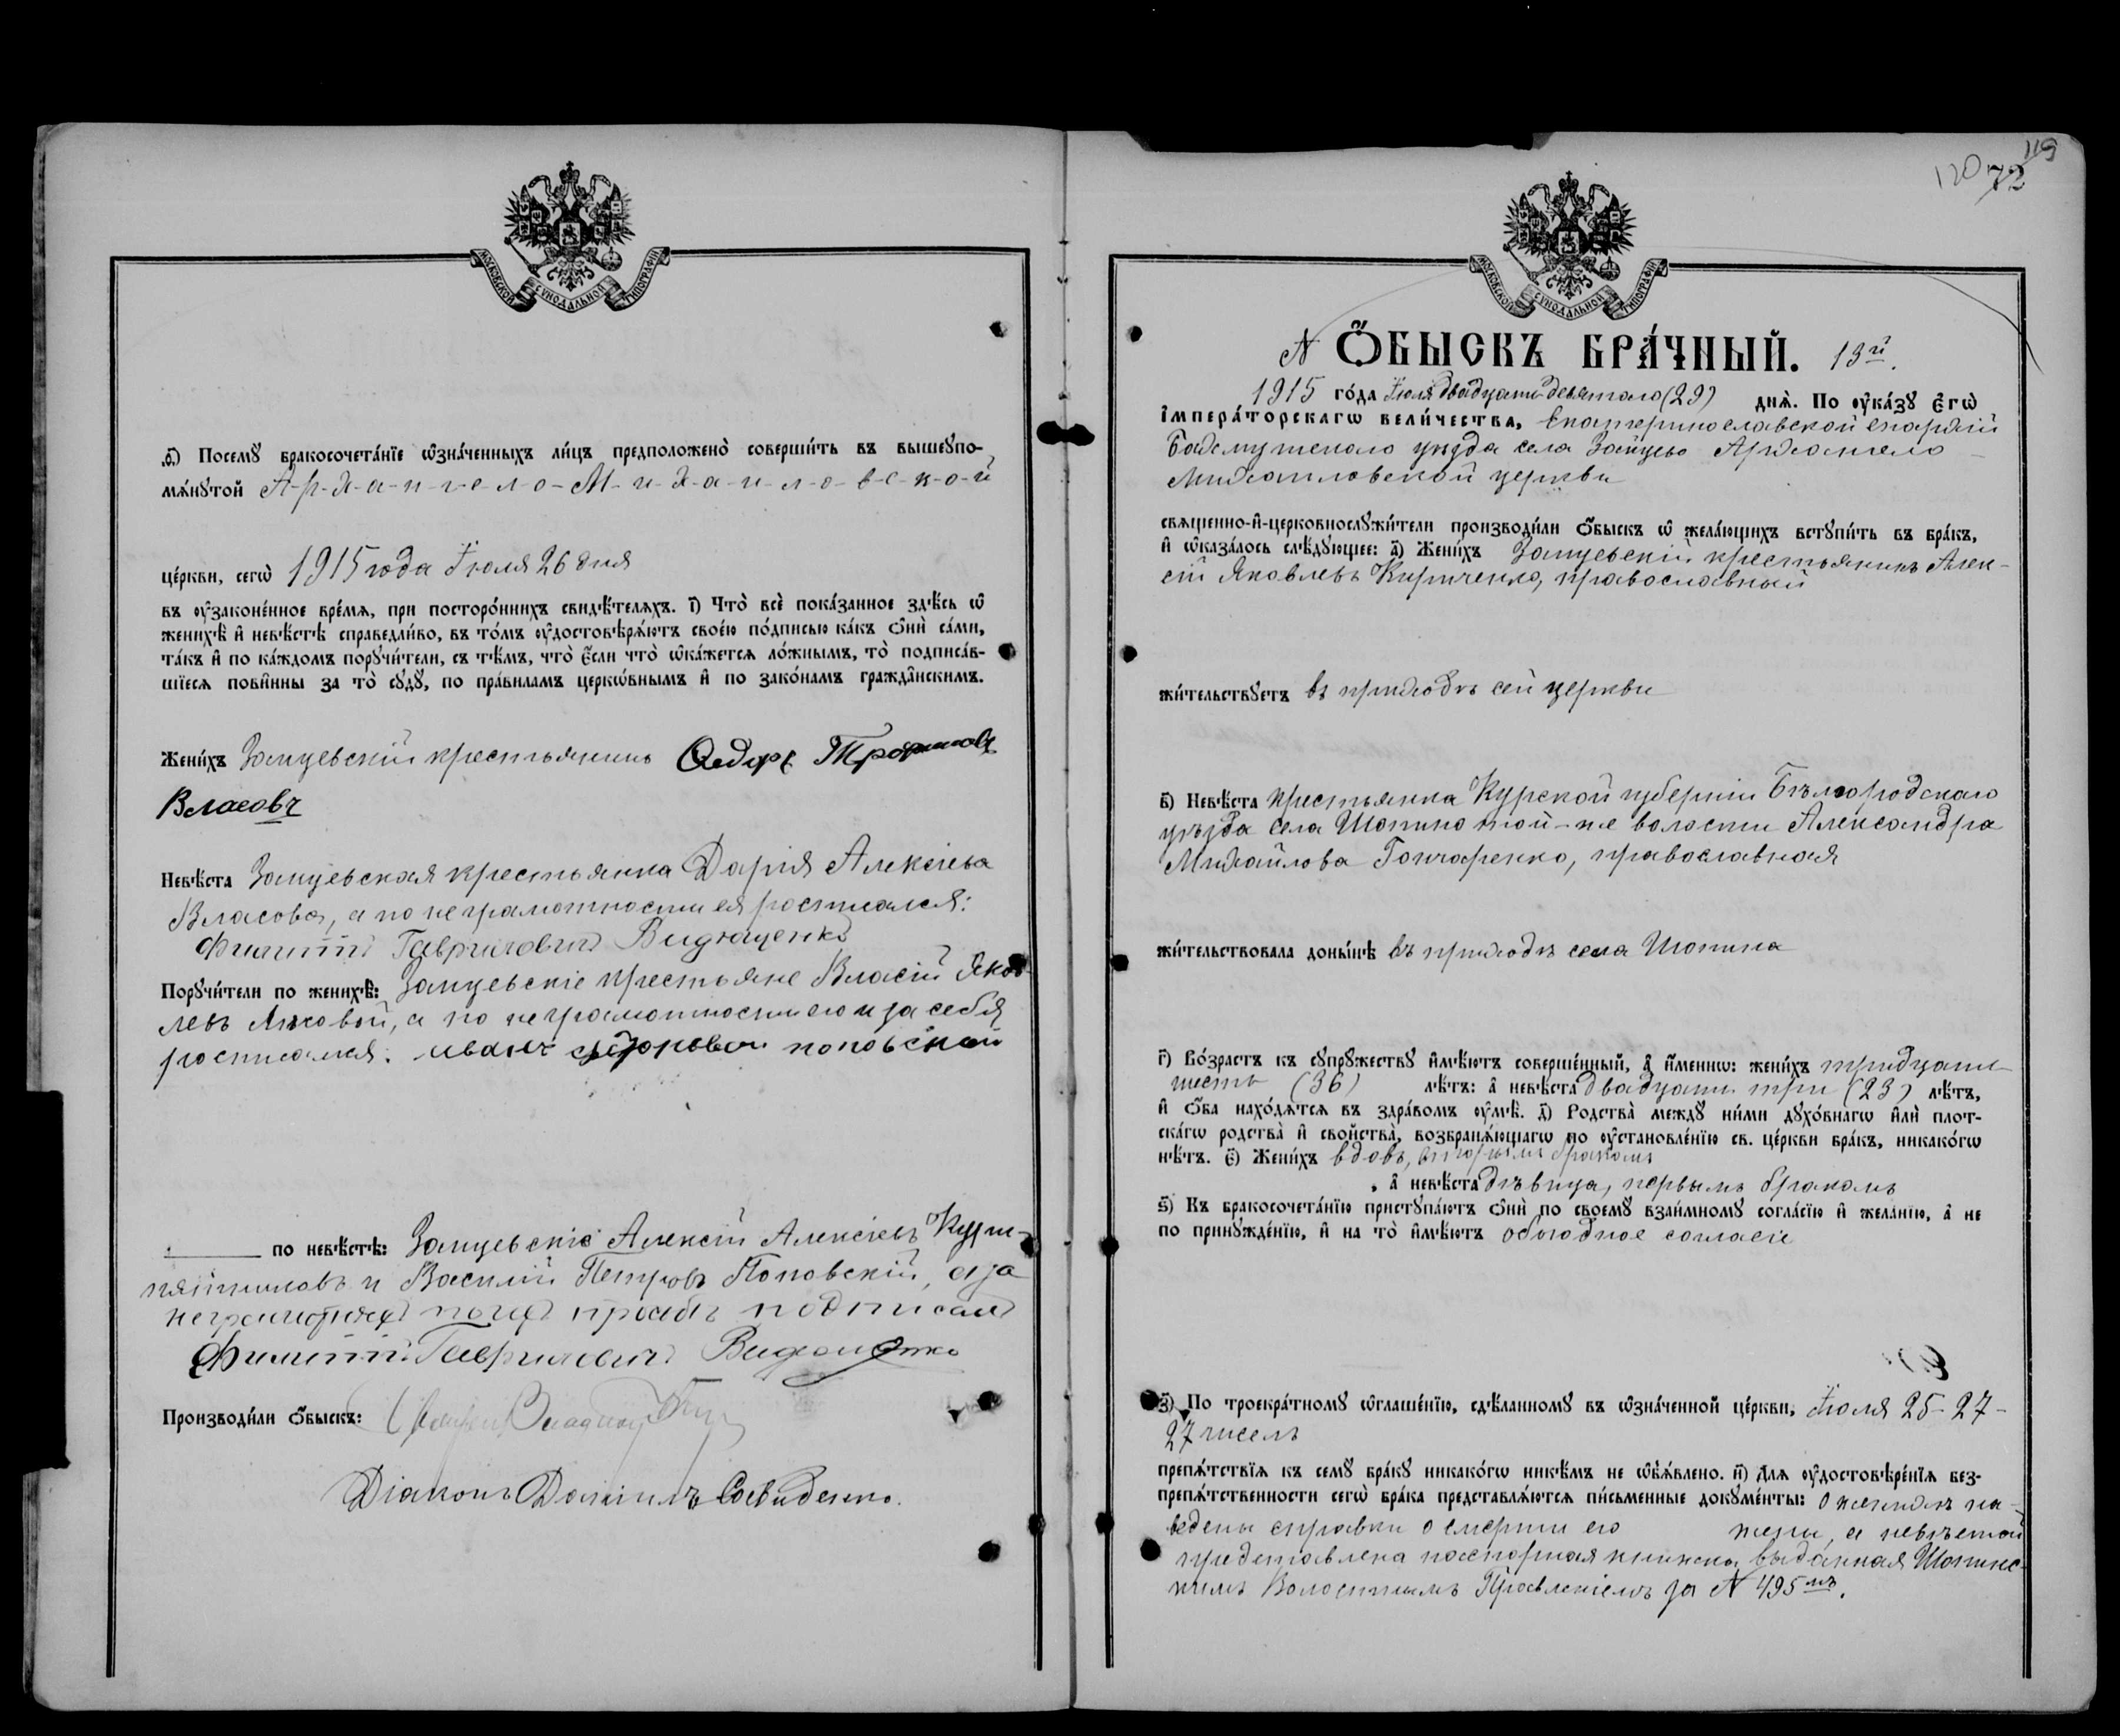 МОСКОВСКОЙ СѴНОДАЛЬНОЙ ТИПОГРАФІИ
ѳ҃) Посемꙋ̀ бракосочета́нїе ѡ҆зна́ченныхъ ли́цъ предположено̀ соверши́ть въ вышеꙋпо-
мѧ́нꙋтой А-р-х-а-н-г-е-л-о-М-и-х-а-и-л-о-в-с-к-о-й
це́ркви, сегѡ̀ 1915 года Іюля 26 дня
въ ᲂу҆законе́нное вре́мѧ, при посторо́ннихъ свидѣ́телѧхъ. і҃) Что̀ всѐ пока́занное здѣ́сь ѡ҆
женихѣ̀ и҆ невѣ́стѣ справедли́во, въ то́мъ ᲂу҆достовѣрѧ́ютъ свое́ю по́дписью ка́къ ѻ҆нѝ са́ми,
та́къ и҆ по ка́ждомъ порꙋчи́тели, съ тѣ́мъ, что̀ є҆́сли что̀ ѡ҆ка́жетсѧ ло́жнымъ, то̀ подписа́в-
шїесѧ пови́нны за то̀ сꙋдꙋ̀, по пра́виламъ церко́внымъ и҆ по зако́намъ гражда́нскимъ.
Жени́хъ Зайцевскій крестьянинъ Ѳедоръ Трофимовъ
Власовъ
Невѣ́ста Зайцевская крестьянка Дарія Алексіева
Власова, а по неграмотности ея росписался:
Филиппъ Гавриловичъ Видющенко
Порꙋчи́тели по женихѣ̀: Зайцевскіе крестьяне Власій Яков
левъ, а по неграмотности его и за себя
росписался: иванъ поповской
по невѣ́стѣ: Зайцевскіе Алексій Алексіевъ Кури-
пятниковъ и Василій Петровъ Поповскій, а за
неграмотных по их прозбѣ подписал
Филиппъ Гавриловичъ
Производи́ли ѻ҆́быскъ:
Діаконъ Даніилъ
120 72 119
МОСКОВСКОЙ СѴНОДАЛЬНОЙ ТИПОГРАФІИ
№ Ѻ҆́БЫСКЪ БРА́ЧНЫЙ. 13й.
1915 го́да Іюля двадцать девятаго (29) днѧ̀. По ᲂу҆ка́зꙋ є҆гѡ̀
і҆мпера́торскагѡ вели́чества, Екатеринославской епархіи
Бахмутскаго уѣзда села Зайцево Архангело-
Михайловской церкви
свѧщенно-и҆-церковнослꙋжи́тели производи́ли ѻ҆́быскъ ѡ҆ жела́ющихъ встꙋпи́ть въ бра́къ,
и҆ ѡ҆каза́лось слѣ́дꙋющее: а҃) Жени́хъ Зайцевскій крестьянинъ Алек-
сій Яковлевъ Кириченко, православный
жи́тельствꙋетъ въ приходѣ сей церкви
в҃) Невѣ́ста крестьянка Курской губерніи Бѣлгородскаго
уѣзда села Шопино той-же волости Александра
Михайлова Гончаренко, православная
жи́тельствовала доны́нѣ въ приходѣ села Шопина
г҃) Во́зрастъ къ сꙋпрꙋ́жествꙋ и҆мѣ́ютъ соверше́нный, а҆ и҆́меннѡ: жени́хъ тридцати
шести (36) лѣ́тъ: а҆ невѣ́ста двадцати три (23) лѣ́тъ,
и҆ ѻ҆́ба нахо́дѧтсѧ въ здра́вомъ ᲂу҆мѣ̀. д҃) Родства̀ междꙋ̀ ни́ми дꙋхо́внагѡ и҆лѝ плот-
ска́гѡ родства̀ и҆ сво́йства̀, возбранѧ́ющагѡ по ᲂу҆становле́нїю св. це́ркви бра́къ, никако́гѡ
нѣ́тъ. є҃) Жени́хъ вдовъ, вторымъ бракомъ
, а҆ невѣ́ста дѣвица, первымъ бракомъ
ѕ҃) Къ бракосочета́нїю пристꙋпа́ютъ ѻ҆нѝ по своемꙋ̀ взаи́мномꙋ согла́сїю и҆ жела́нїю, а҆ не
по принꙋжде́нїю, и҆ на то̀ и҆мѣ́ютъ обоюдное согласіе
з҃) По троекра́тномꙋ ѡ҆глаше́нїю, сдѣ́ланномꙋ въ ѡ҆зна́ченной це́ркви, Іюля 25-27-
27 числъ
препѧ́тствїѧ къ семꙋ̀ бра́кꙋ никако́гѡ никѣ́мъ не ѡ҆бъѧ́влено. и҃) Длѧ ᲂу҆достовѣре́нїѧ без-
препѧ́тственности сегѡ̀ бра́ка представлѧ́ютсѧ пи́сьменные докꙋме́нты: о женихѣ на-
ведены справки о смерти его жены, а невѣстой
представлена паспортная книжка, выданная Шопинс-
кимъ Волостнымъ Правленіемъ за № 495мъ.